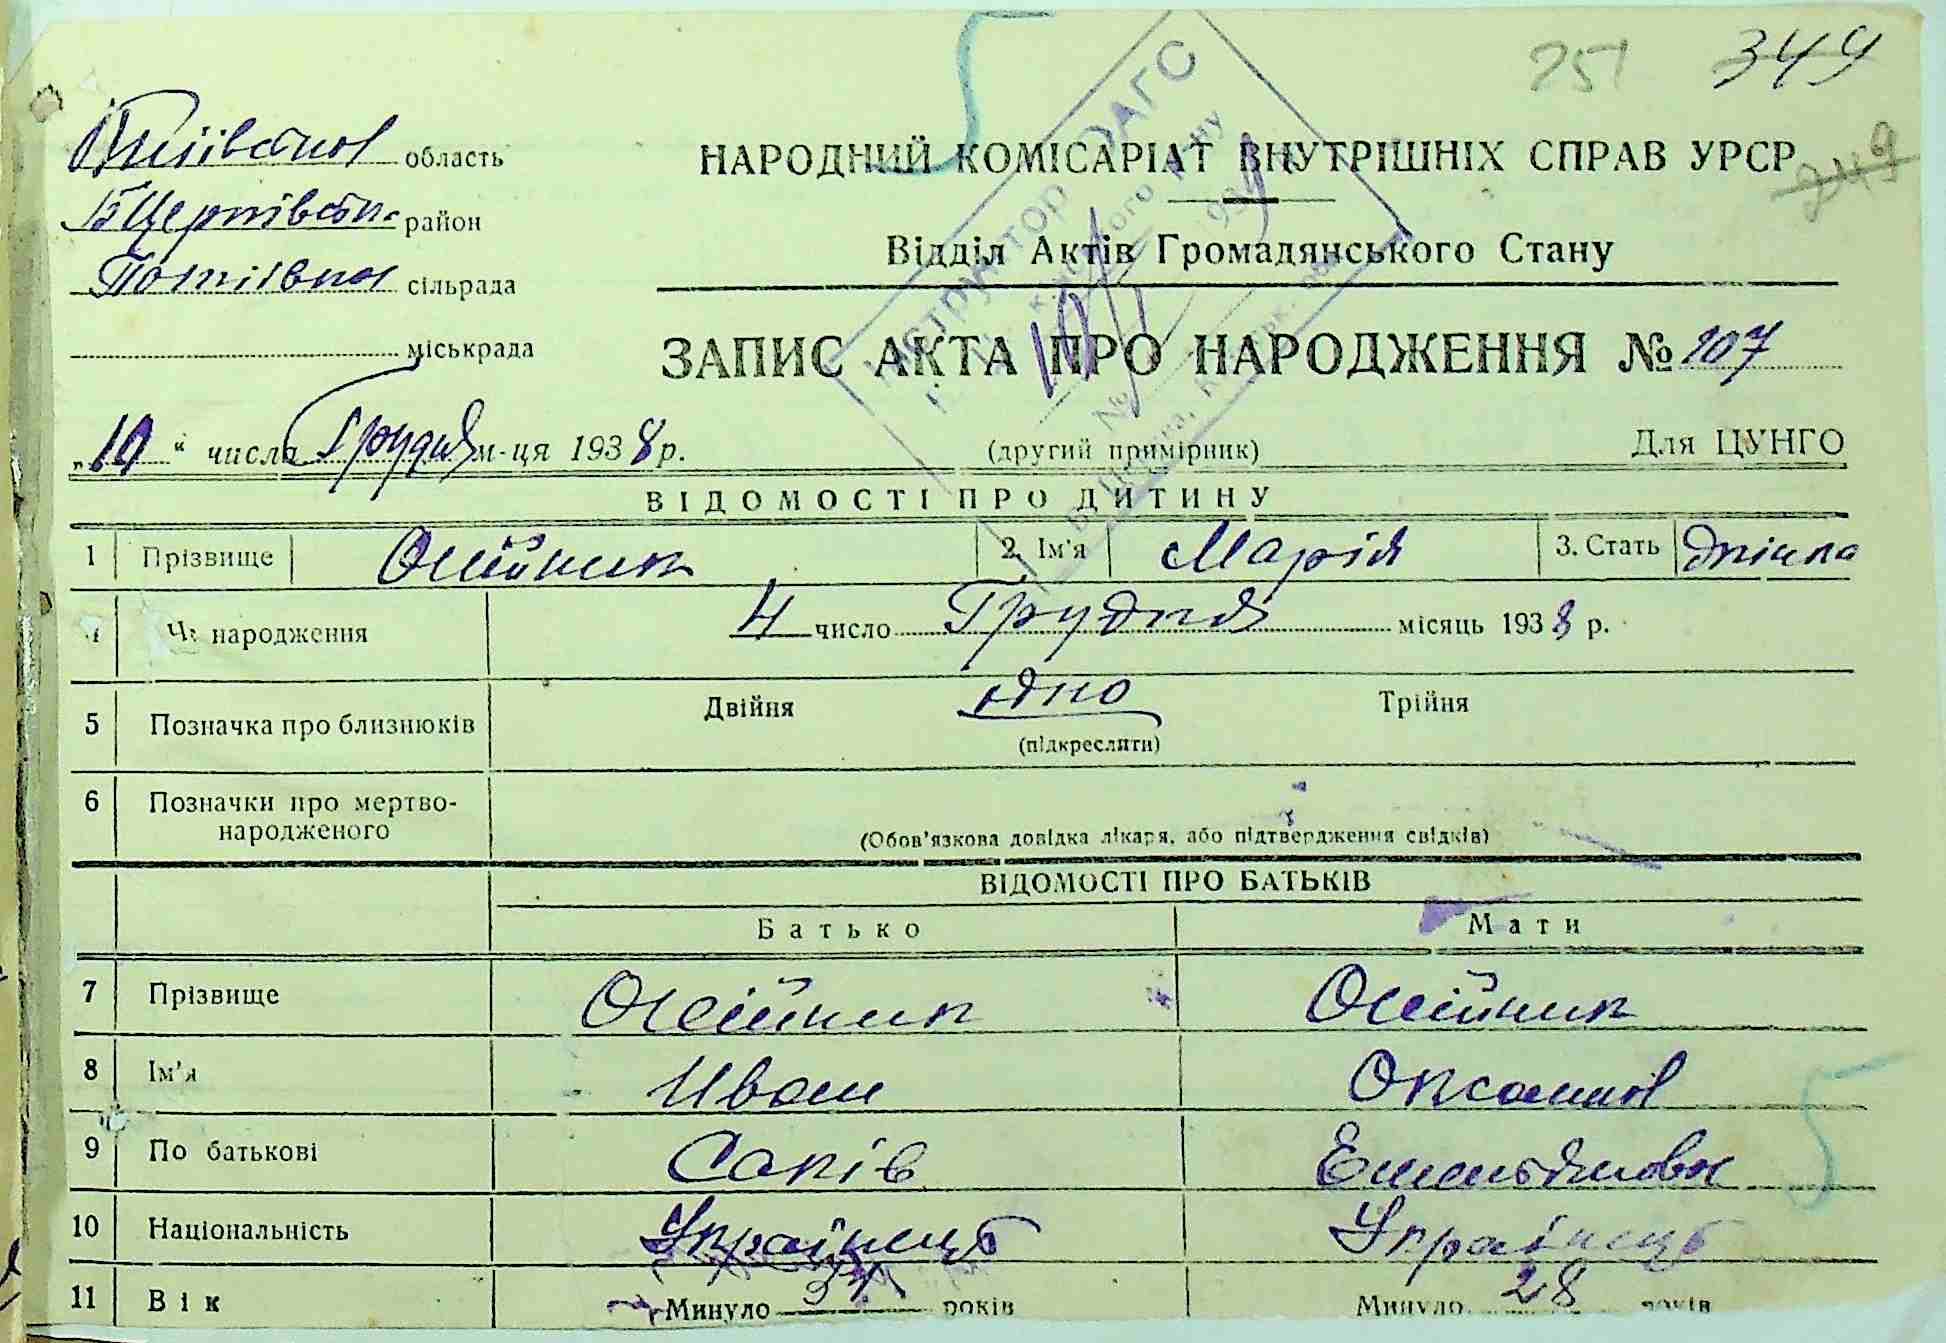 251 349
249
Київська область
БЦерківськ. район
Потіївка сільрада
міськрада
НАРОДНИЙ КОМІСАРІАТ ВНУТРІШНІХ СПРАВ УРСР
Відділ Актів Громадянського Стану
ЗАПИС АКТА ПРО НАРОДЖЕННЯ № 107
„10“ числа Грудня м-ця 1938 р.
(другий примірник) Для ЦУНГО
ВІДОМОСТІ ПРО ДИТИНУ
1 Прізвище Олійник 2. Ім'я Марія 3. Стать
народження 4 число Грудня місяць 1938 р.
5 Позначка про близнюків Двійня одно Трійня
(підкреслити)
6 Позначки про мертво-
народженого
(Обов'язкова довідка лікаря, або підтвердження свідків)
ВІДОМОСТІ ПРО БАТЬКІВ
Батько Мати
7 Прізвище Олійник Олійник
8 Ім'я Иван Оксана
9 По батькові Сапів Емельянова
10 Національність Українець Українець
11 Вік Минуло років Минуло 28 років
5
5
Інструктор ЗАГС